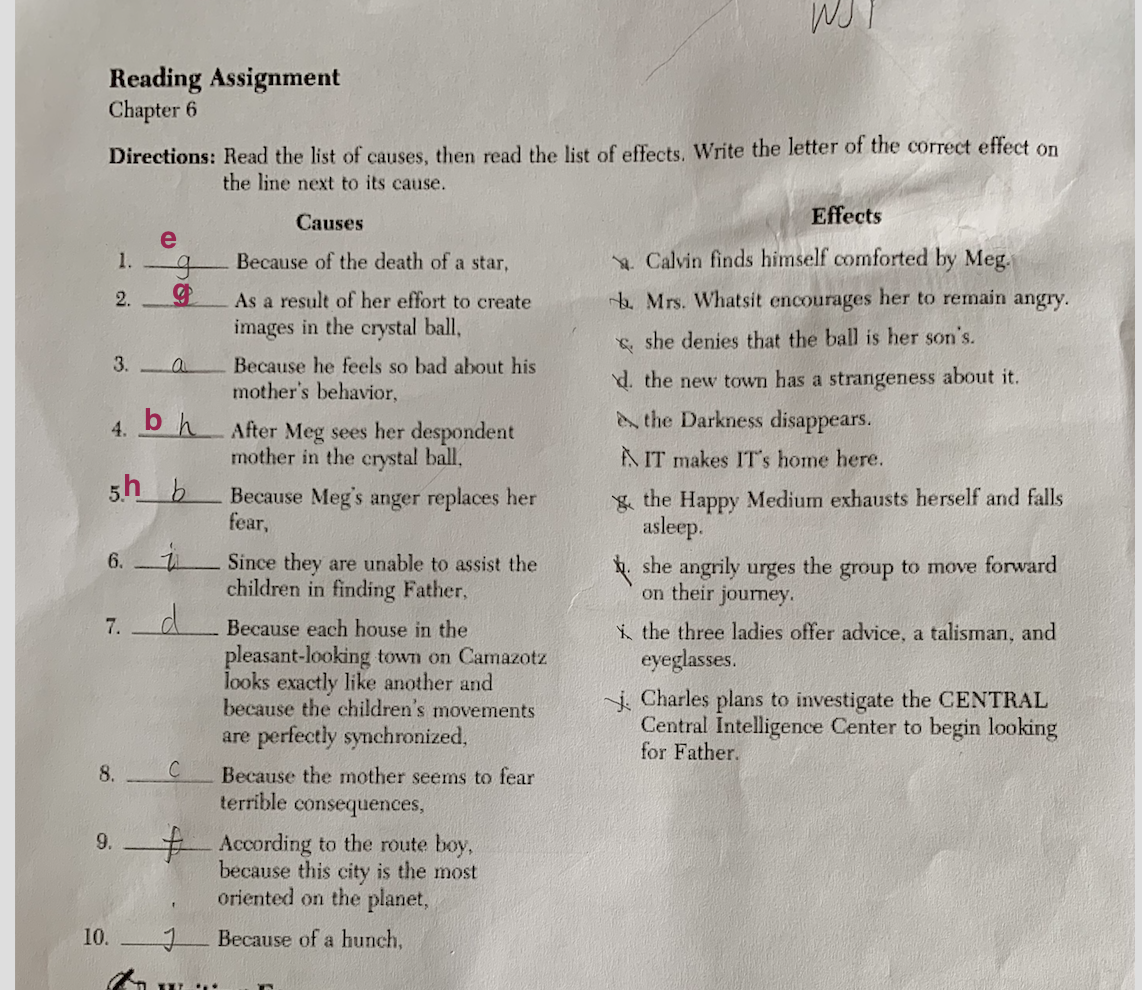 WJT
Reading Assignment
Chapter 6
Directions: Read the list of causes, then read the list of effects. Write the letter of the correct effect on
the line next to its cause.
Causes
e
1. g Because of the death of a star,
2. g As a result of her effort to create
images in the crystal ball,
3. a Because he feels so bad about his
mother's behavior,
4. b h After Meg sees her despondent
mother in the crystal ball,
5. h b Because Meg's anger replaces her
fear,
6. i Since they are unable to assist the
children in finding Father,
7. d Because each house in the
pleasant-looking town on Camazotz
looks exactly like another and
because the children's movements
are perfectly synchronized,
8. c Because the mother seems to fear
terrible consequences,
9. f According to the route boy,
because this city is the most
oriented on the planet,
10. j Because of a hunch,
Effects
a. Calvin finds himself comforted by Meg.
b. Mrs. Whatsit encourages her to remain angry.
c. she denies that the ball is her son's.
d. the new town has a strangeness about it.
e. the Darkness disappears.
f. IT makes IT's home here.
g. the Happy Medium exhausts herself and falls
asleep.
h. she angrily urges the group to move forward
on their journey.
i. the three ladies offer advice, a talisman, and
eyeglasses.
j. Charles plans to investigate the CENTRAL
Central Intelligence Center to begin looking
for Father.